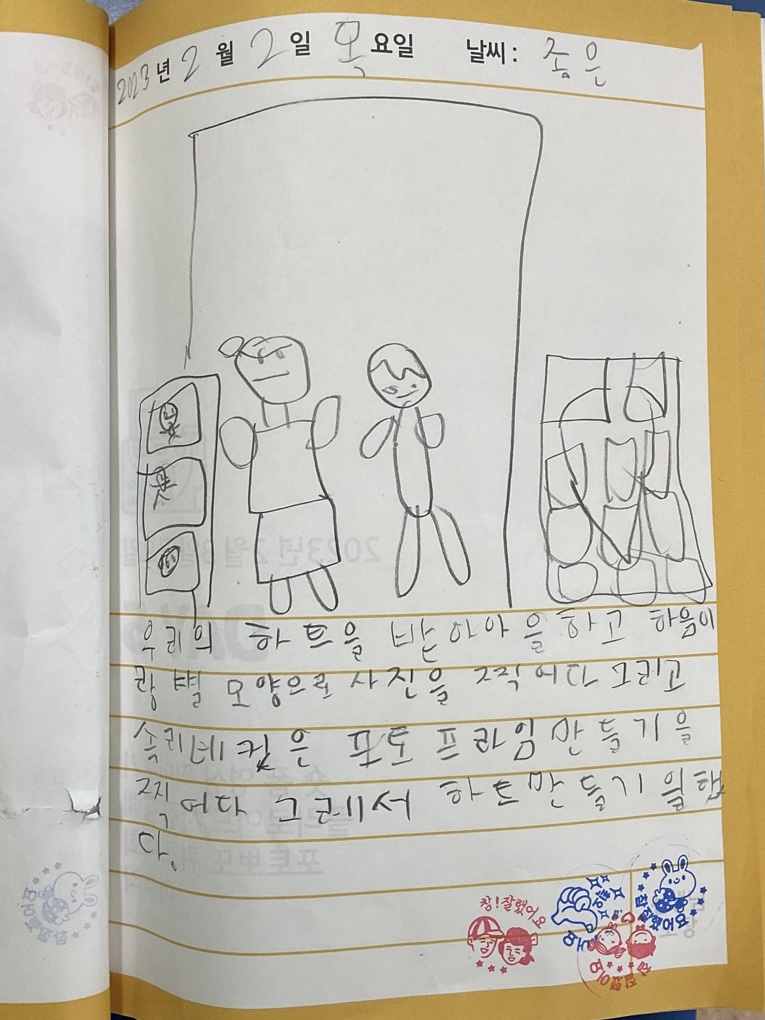 2023년 2월 2일 목요일 날씨: 좋은
우리의 하트을 받아아을 하고 하음이
랑 별 모양으로 사진을 찍어다 그리고
속리네컷은 포토프라임 만들기을
찍어다 그레서 하트만들기 을했
다.
참!잘했어요